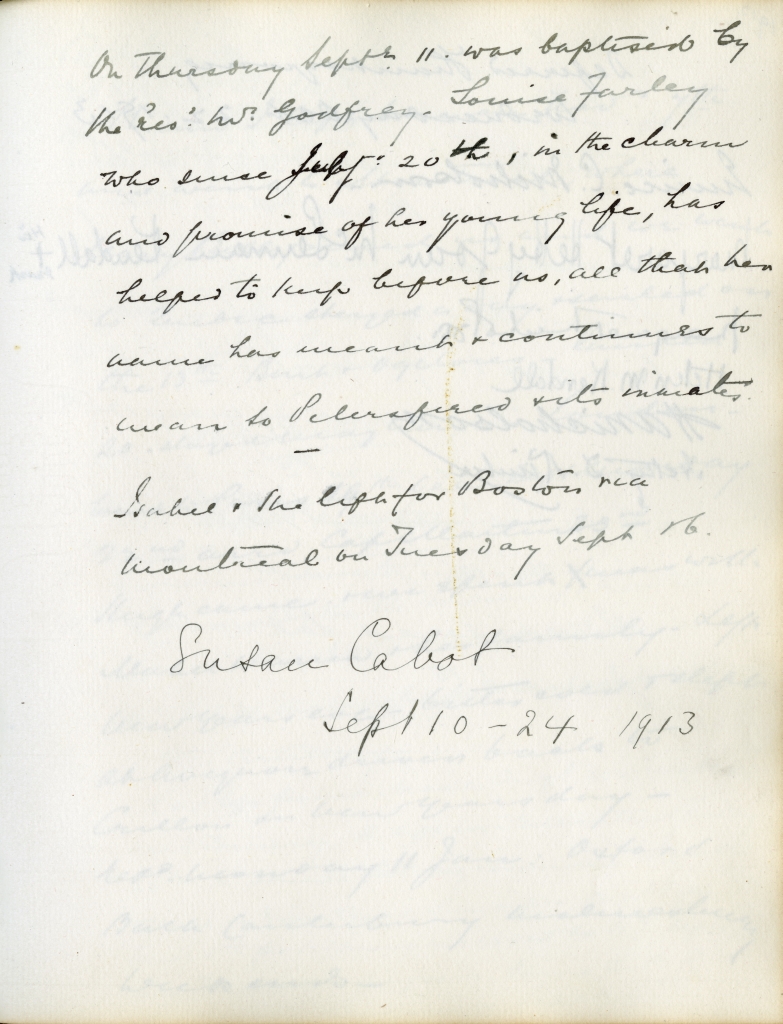 On Thursday Sept 11. was baptised by
the Revd. Mr. Godfrey. Louise Farley
who since 20th, in the charm
and promise of her young life, has
helped to keep before us, all that her
name has meant & continues to
mean to Petersfield & its inmates.
—
Isabel & she left for Boston via
Montreal on Tuesday Sept 16.
Susan Cabot
Sept 10 - 24 1913